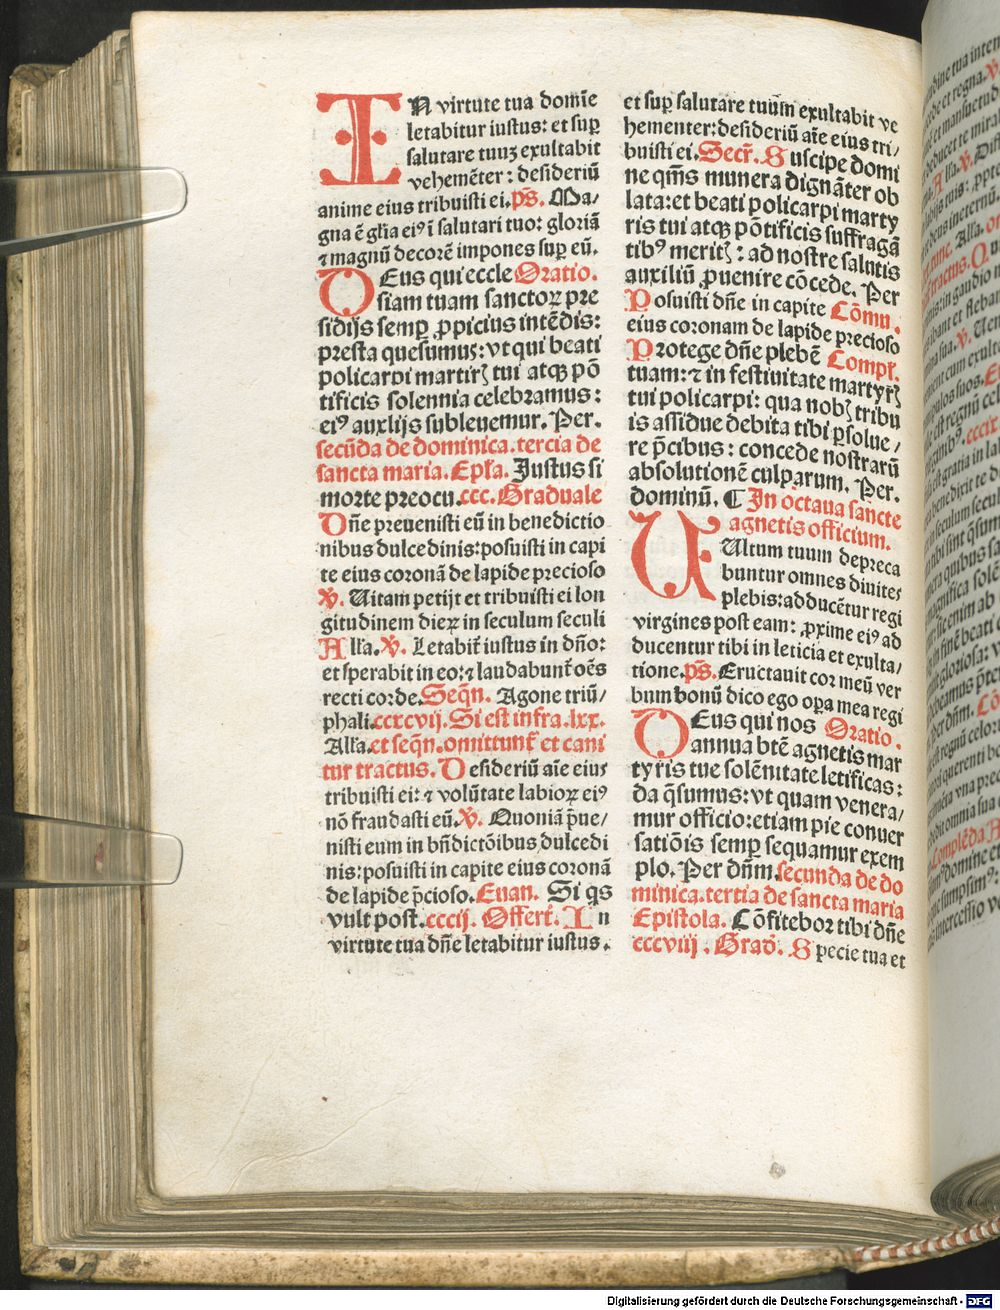 IN virtute tua domīe
letabitur iustus: et suꝑ
salutare tuuʒ exultabit
vehemēter: desideriū
anime eius tribuisti ei. p̄s. Ma/
gna ē gl̄ia eiꝰ ī salutari tuo: gloriā
⁊ magnū decorē impones suꝑ eū.
DEus qui eccle Oratio.
siam tuam sanctoꝝ pre
sidijs semꝑ ꝓpicius intēdis:
presta quesumus: vt qui beati
policarpi martirꝭ tui atqꝫ pō
tificis solennia celebramus:
eiꝰ auxlijs subleuemur. Per.
secūda de dominica. tercia de
sancta maria. Epl̄a. Justus si
morte preocu. ccc. Graduale
Dn̄e preuenisti eū in benedictio
nibus dulcedinis: posuisti in capi
te eius coronā de lapide precioso
℣. Uitam petijt et tribuisti ei lon
gitudinem dieꝝ in seculum seculi
All'a. ℣. Letabit̄ iustus in dn̄o:
et sperabit in eo: ⁊ laudabunt̄ oēs
recti corde. Seqn̄. Agone triū/
phali. ccxcvij. Si est infra .lxx.
All'a. et seqn̄. omittunt̄ et cani
tur tractus. Desideriū aīe eius
tribuisti ei: ⁊ volūtate labioꝝ eiꝰ
nō fraudasti eū. ℣. Quoniā p̄ue/
nisti eum in bn̄dictōibus dulcedi
nis: posuisti in capite eius coronā
de lapide p̄cioso. Euan. Si qs
vult post. cccij. Offert̄. In
virtute tua dn̄e letabitur iustus.
et suꝑ salutare tuūm exultabit ve
hementer: desideriū aīe eius tri/
buisti ei. Secr̄. Suscipe domi
ne qm̄s munera dignāter ob
lata: et beati policarpi marty
ris tui atqꝫ pōtificis suffragā
tibꝰ meritꝭ: ad nostre salutis
auxiliū ꝓuenire cōcede. Per
Posuisti dn̄e in capite Cōmu.
eius coronam de lapide precioso
Protege dn̄e plebē Compl̄.
tuam: ⁊ in festiuitate martyrꝭ
tui policarpi: qua nobꝭ tribu
is assidue debita tibi ꝑsolue/
re p̄cibus: concede nostrarū
absolutionē culparum. Per.
dominū. ¶ In octaua sancte
agnetis officium.
VUltum tuum depreca
buntur omnes diuites
plebis: adducētur regi
virgines post eam: ꝓxime eiꝰ ad
ducentur tibi in leticia et exulta/
tione. p̄s. Eructauit cor meū ver
bum bonū dico ego oꝑa mea regi
DEus qui nos Oratio.
annua btē agnetis mar
tyris tue solēnitate letificas:
da qs̄umus: vt quam venera/
mur officio: etiam pie conuer
satiōis semꝑ sequamur exem
plo. Per dn̄m. secunda de do
minica. tertia de sancta maria
Epistola. Cōfitebor tibi dn̄e
cccviij. Grad̄. Specie tua et
Digitalisierung gefördert durch die Deutsche Forschungsgemeinschaft - DFG